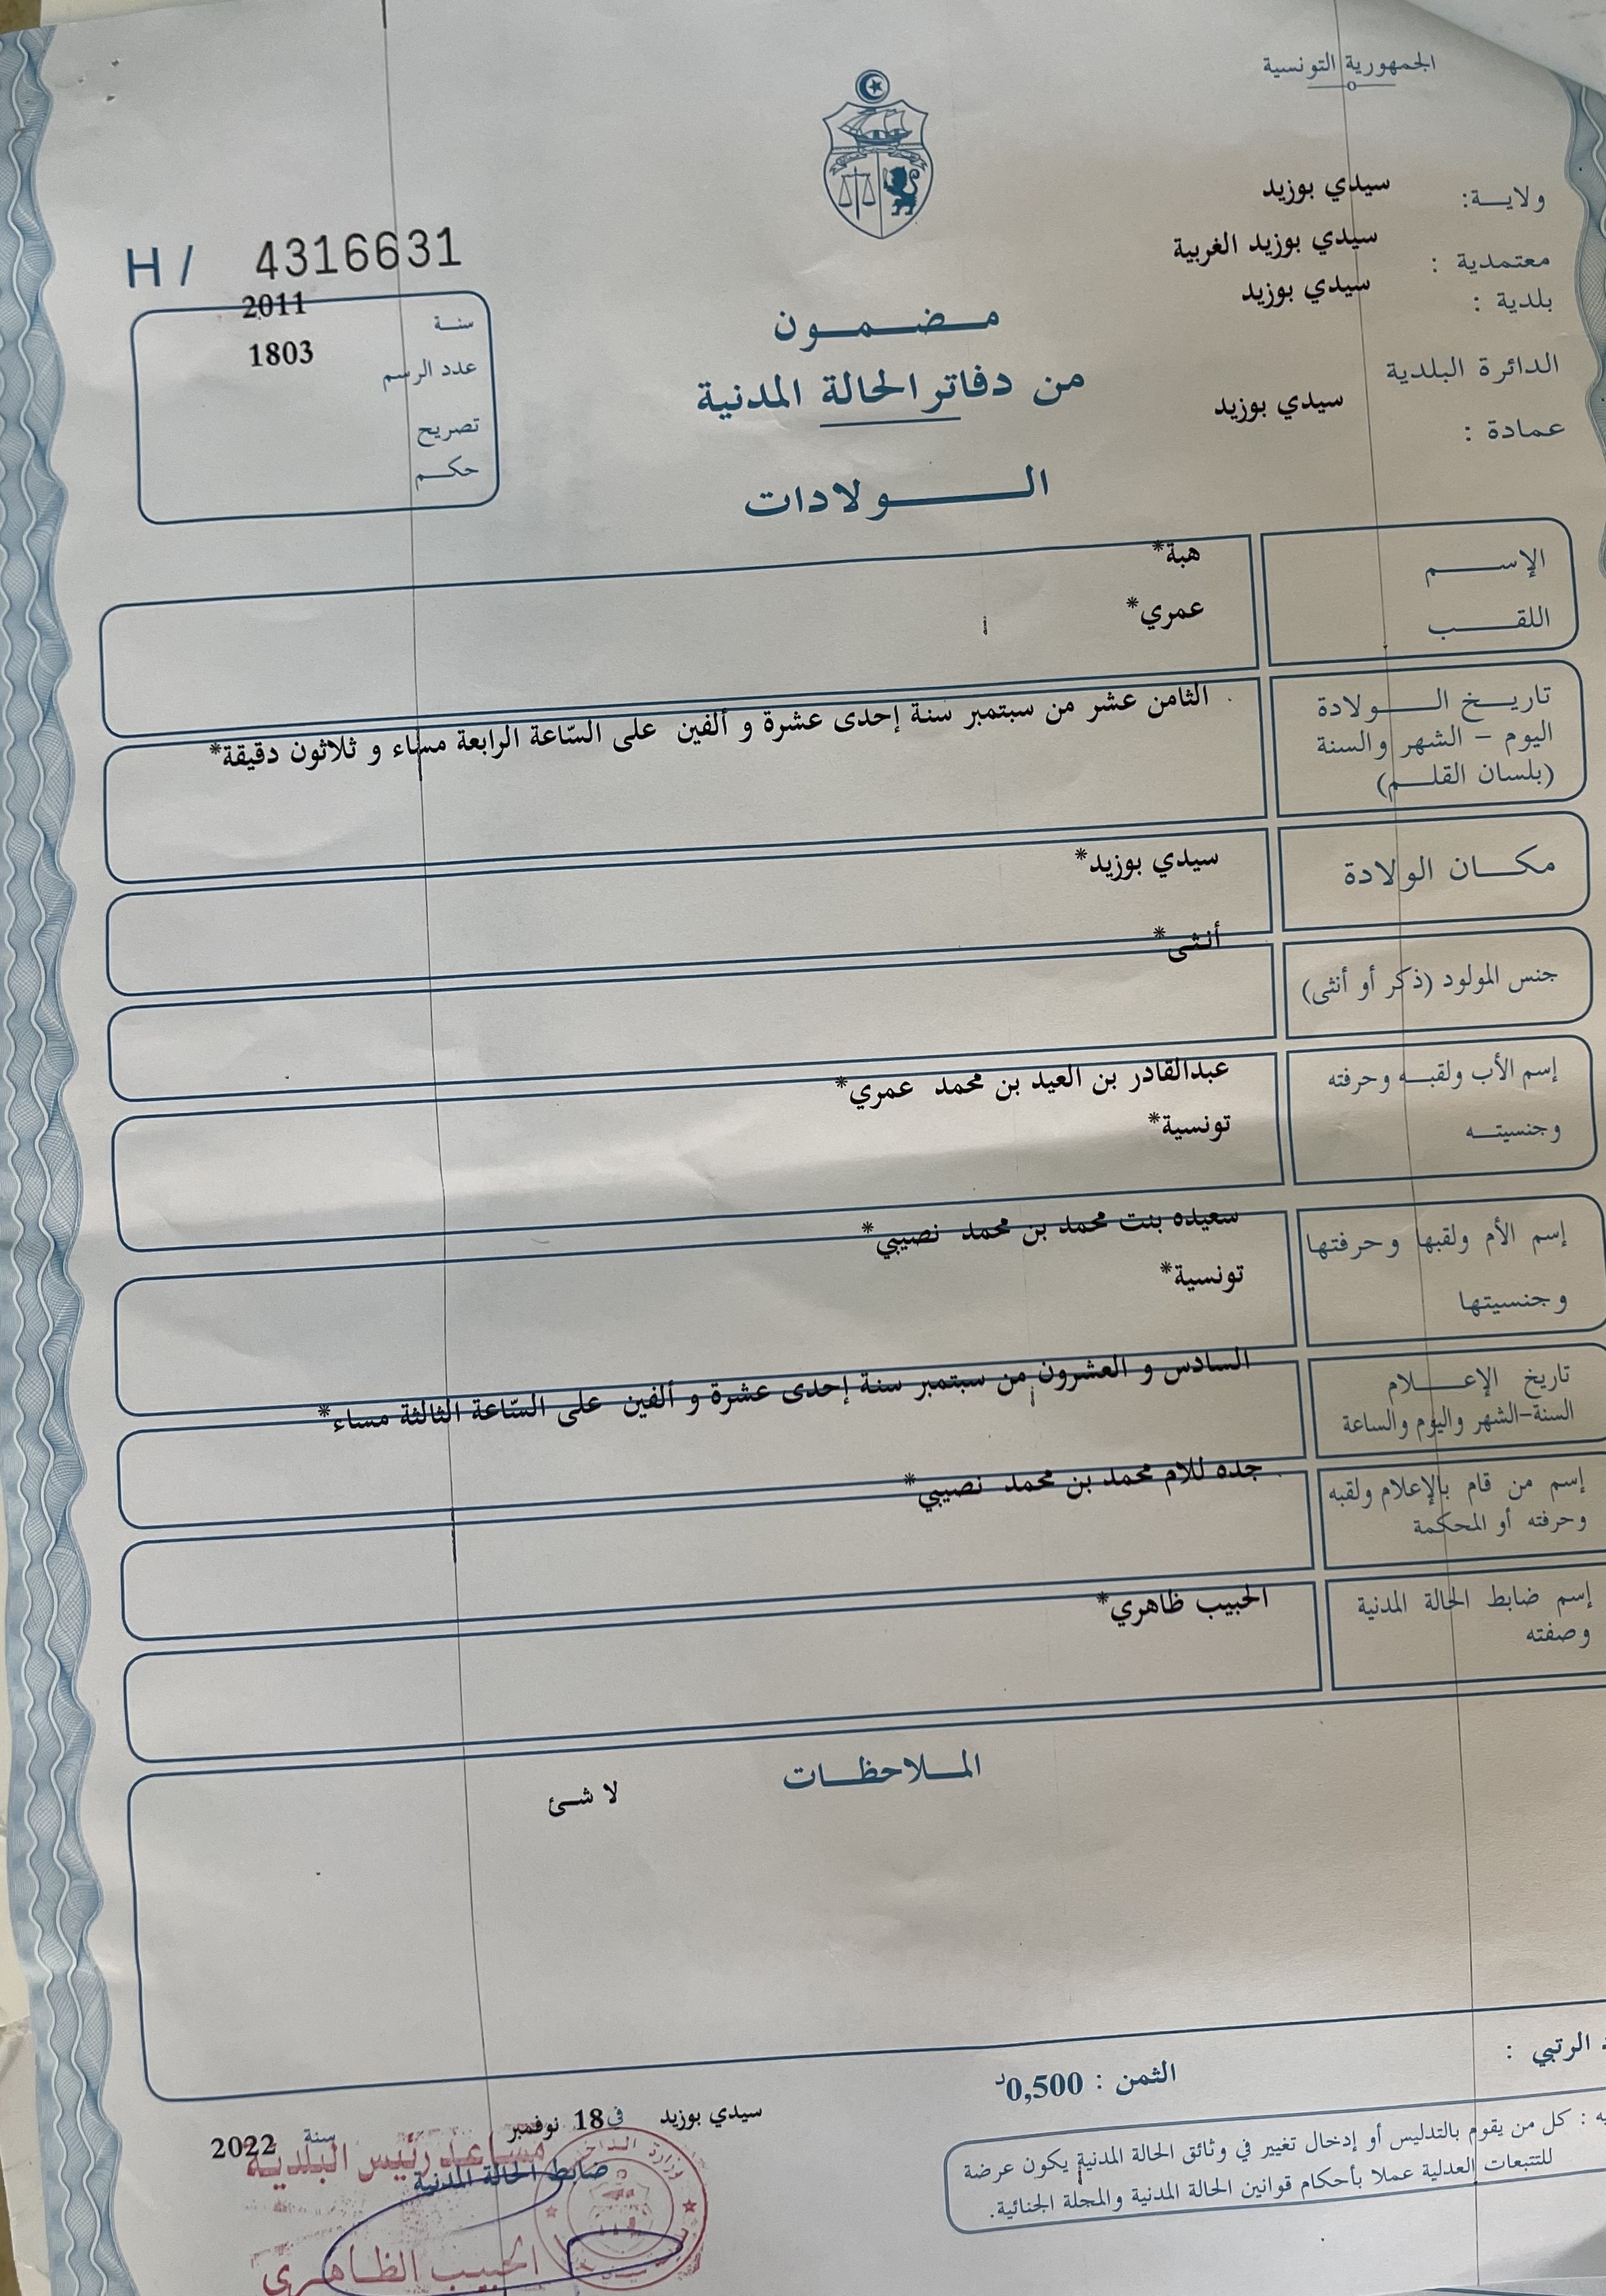 الجمهورية التونسية
ولايـــة: سيدي بوزيد
معتمدية : سيدي بوزيد الغربية
بلدية : سيدي بوزيد
الدائرة البلدية
عمادة : سيدي بوزيد
H / 4316631
سنة 2011
عدد الرسم 1803
تصريح
حكم
مضمون
من دفاتر الحالة المدنية
الولادات
الإسم هبة*
اللقب عمري*
تاريخ الولادة
اليوم - الشهر والسنة
(بلسان القلم)
الثامن عشر من سبتمبر سنة إحدى عشرة و ألفين على السّاعة الرابعة مساء و ثلاثون دقيقة*
مكان الولادة سيدي بوزيد*
جنس المولود (ذكر أو أنثى) أنثى*
إسم الأب ولقبه وحرفته عبدالقادر بن العيد بن محمد عمري*
وجنسيته تونسية*
إسم الأم ولقبها وحرفتها سعيده بنت محمد بن محمد نصيبي*
وجنسيتها تونسية*
تاريخ الإعلام
السنة-الشهر واليوم والساعة
السادس و العشرون من سبتمبر سنة إحدى عشرة و ألفين على السّاعة الثالثة مساء*
إسم من قام بالإعلام ولقبه
وحرفته أو المحكمة
جده للام محمد بن محمد نصيبي*
إسم ضابط الحالة المدنية
وصفته
الحبيب ظاهري*
الملاحظات
لا شئ
الرتبي :
الثمن : 0,500د
: كل من يقوم بالتدليس أو إدخال تغيير في وثائق الحالة المدنية يكون عرضة
للتتبعات العدلية عملا بأحكام قوانين الحالة المدنية والمجلة الجنائية.
سيدي بوزيد في 18 نوفمبر سنة 2022
مساعد رئيس البلدية
ضابط الحالة المدنية
الحبيب الظاهري